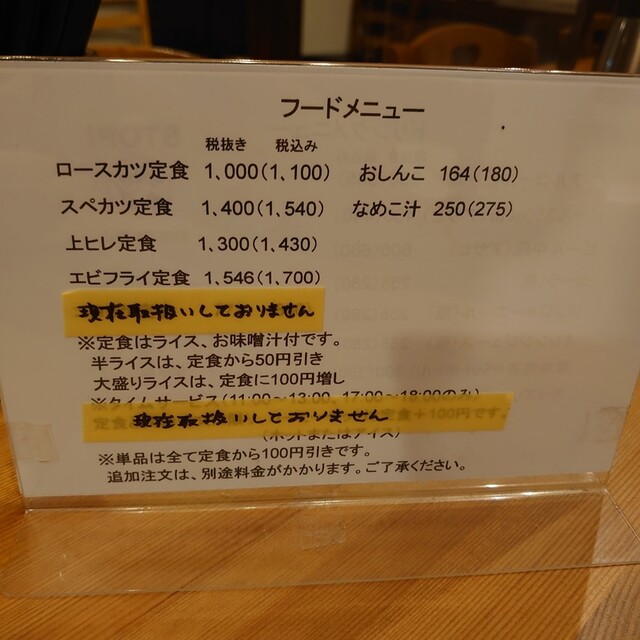 フードメニュー
税抜き 税込み
ロースカツ定食 1,000(1,100) おしんこ 164(180)
スペカツ定食 1,400(1,540) なめこ汁 250(275)
上ヒレ定食 1,300(1,430)
エビフライ定食 1,546(1,700)
現在取扱いしておりません
※定食はライス、お味噌汁付です。
半ライスは、定食から50円引き
大盛りライスは、定食に100円増し
※タイムサービス(11:00~13:00、17:00~18:00のみ)
現在取扱いしておりません
定食+100円です。
(ホットまたはアイス)
※単品は全て定食から100円引きです。
追加注文は、別途料金がかかります。ご了承ください。